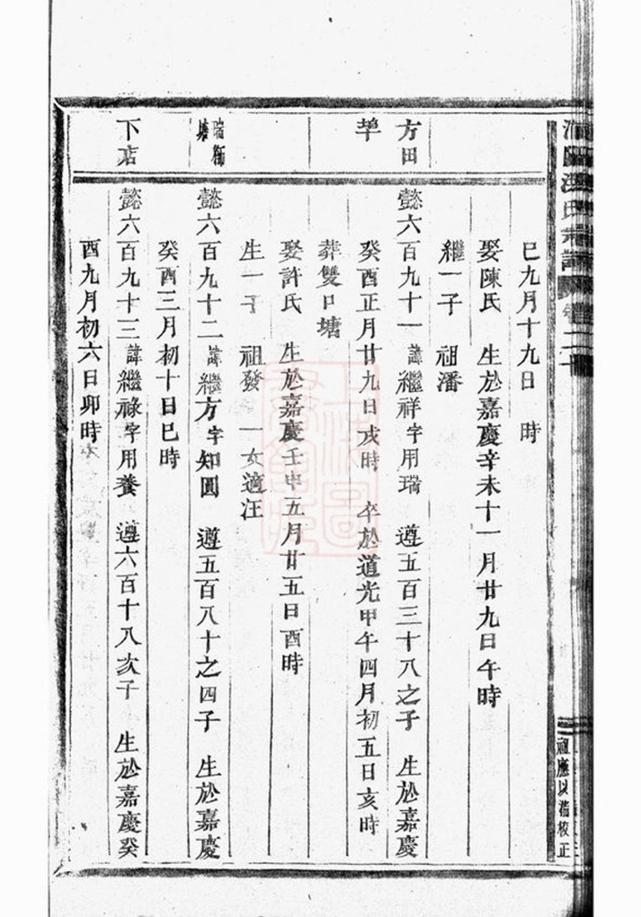 巳九月十九日 時
娶陳氏 生於嘉慶辛未十一月廿九日午時
繼一子 祖潘
方田
懿六百九十一諱繼祥字用瑞 遵五百三十八之子 生於嘉慶
癸酉正月廿九日戌時 卒於道光甲午四月初五日亥時
葬雙口塘
娶許氏 生於嘉慶壬申五月廿五日酉時
生一子 祖發 一女適汪
懿六百九十二諱繼方字知圓 遵五百八十之四子 生於嘉慶
癸酉三月初十日巳時
下店
懿六百九十三諱繼祿字用養 遵六百十八次子 生於嘉慶癸
酉九月初六日卯時